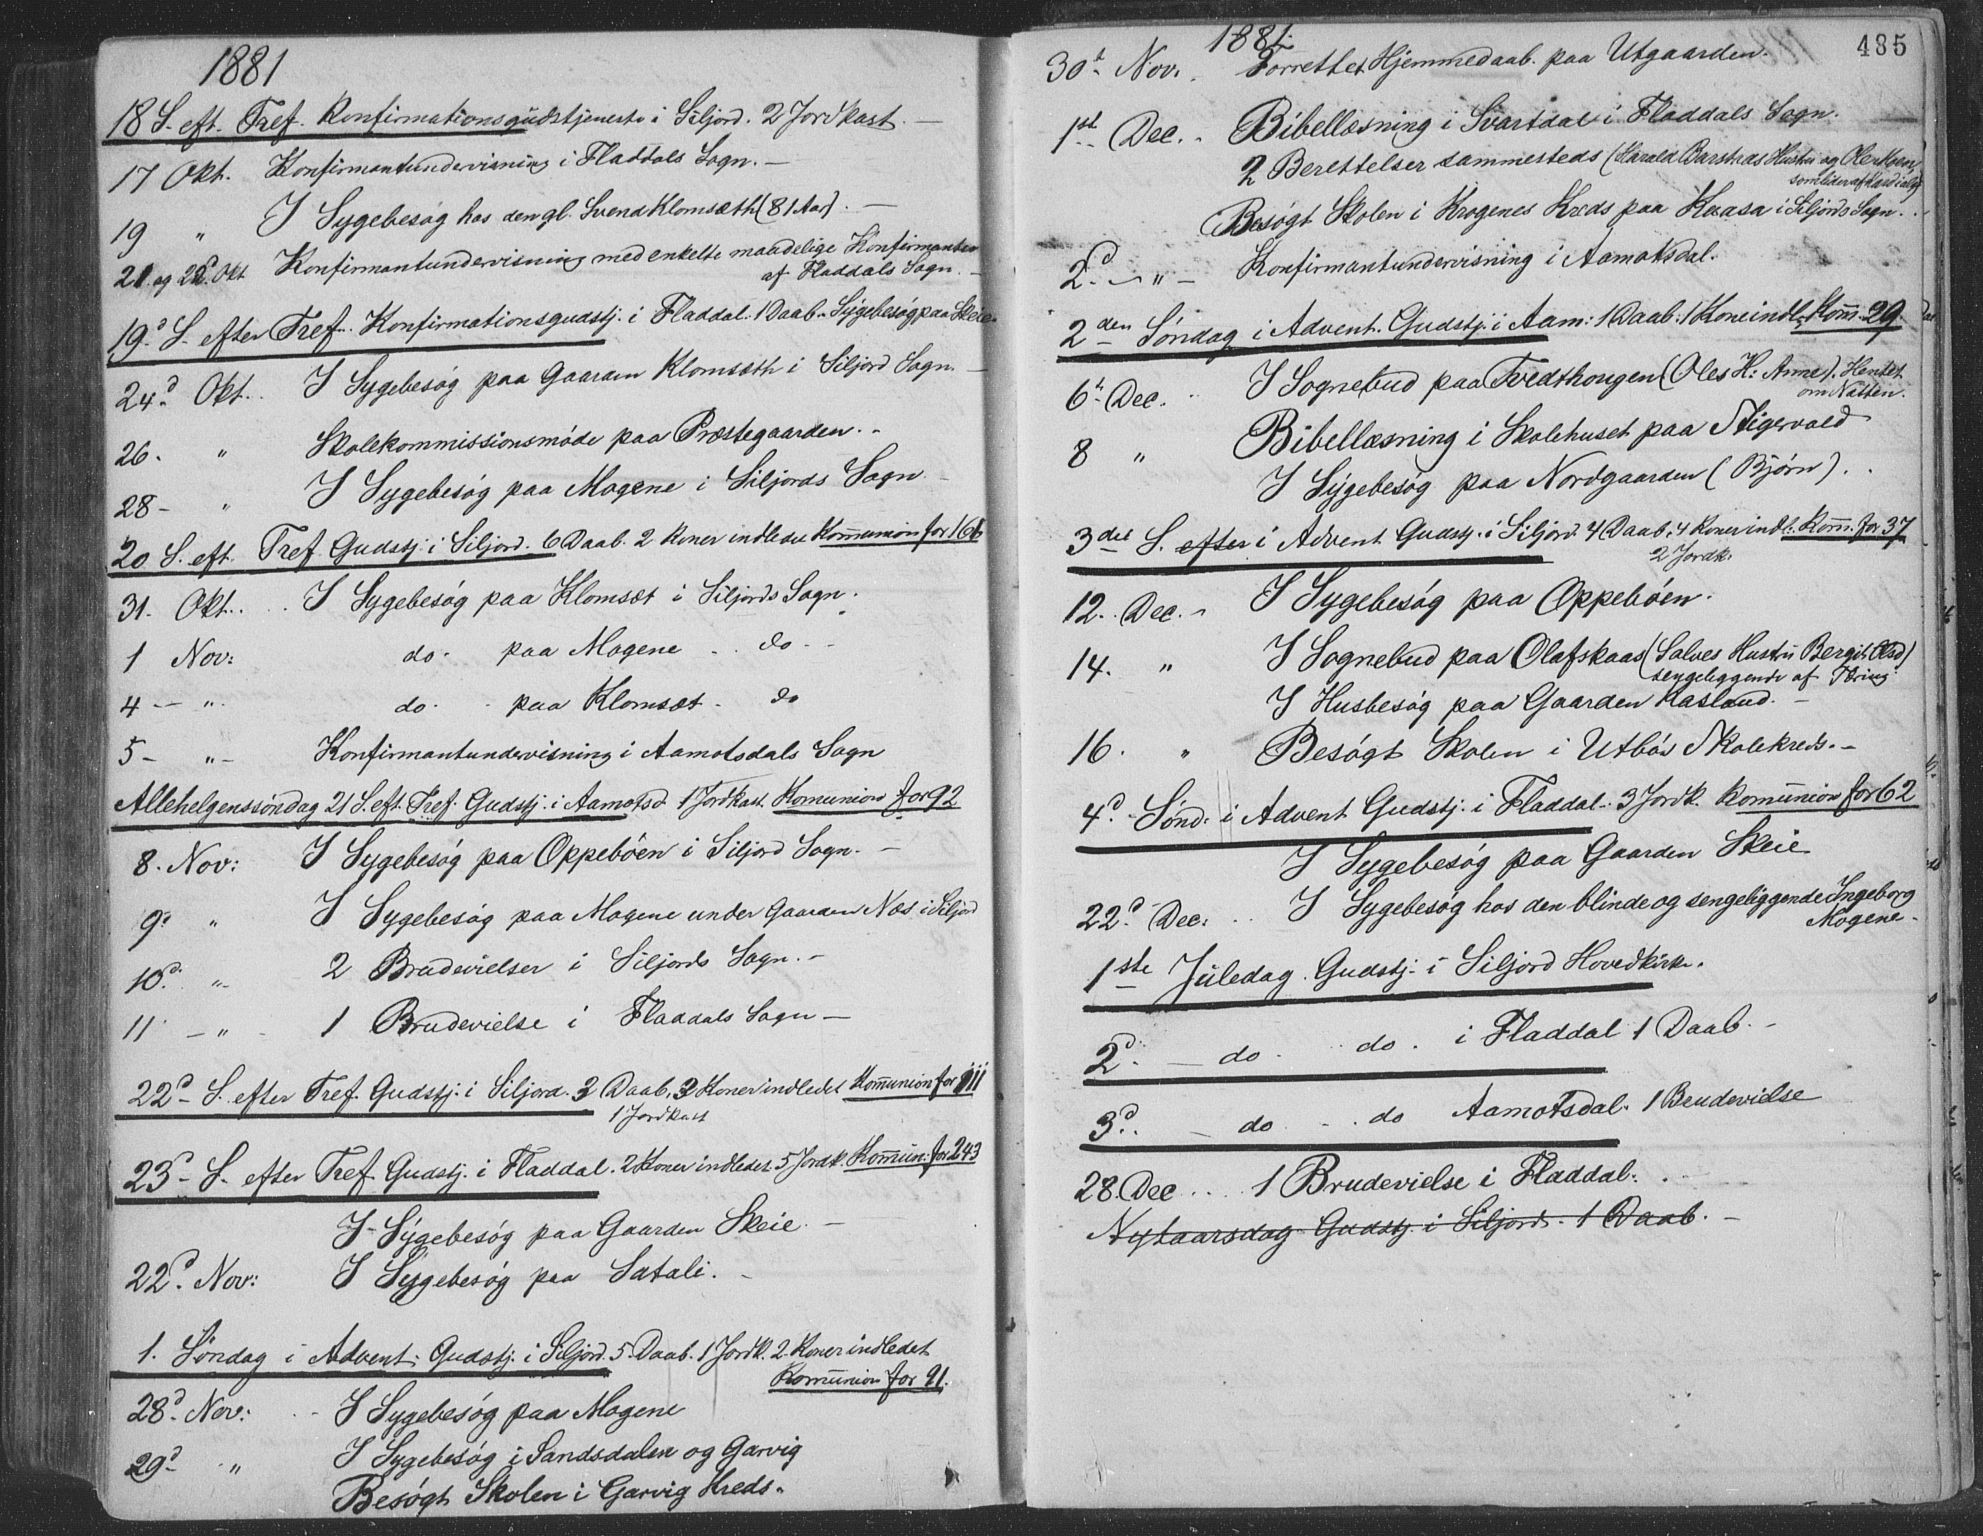 1881
18 S. eft. Tref. Konfirmationsgudstjeneste i Siljord. 2 Jordkast. —
17 Okt. Konfirmantundervisning i Fladdals Sogn. —
19 " I Sygebesøg hos den gl. Svend Klomsæth (81 Aar). —
21. og 22d. Okt Konfirmantundervisning med enkelte maadelige Konfirmanter
af Fladdals Sogn. —
19d. S. efter Tref. Konfirmationsgudstj. i Fladdal. 1 Daab. Sygebesøg paa Skeie.
24d. Okt. I Sygebesøg paa Gaarden Klomsæth i Siljord Sogn. —
26. " Skolekommissionsmøde paa Præstegaarden. -
28 - " I Sygebesøg paa Mogene i Siljords Sogn. -
20 S. eft. Tref. Gudstj. i Siljord. 6 Daab. 2 Koner indledet Kommunion for 161
31. Okt. . . I Sygebesøg paa Klomsæt i Siljords Sogn.
1 Nov: do. paa Mogene . . do - -
4 - " . do . paa Klomsæt . do
5 - " - Konfirmantundervisning i Aamotsdals Sogn
Allehelgenssøndag 21 S. eft. Tref. Gudstj. i Aamotsd 1 Jordkast. Komunion for 92
8. Nov: I Sygebesøg paa Oppebøen i Siljord Sogn. —
9d " I Sygebesøg paa Mogene under Gaarden Næs i Siljord
10d. " - 2 Brudevielser i Siljords Sogn. -
11 - " - 1 Brudevielse i Fladdals Sogn —
22d - S. efter Tref. Gudstj. i Siljord. 3 Daab. 3 Koner indledet Kommunion for 111
1 Jordkast
23d - S. efter Tref. Gudstj. i Fladdal. 2 Koner indledet. 5 Jordk. Kommun: for 243
I Sygebesøg paa Gaarden Skeie. —
22d. Nov: I Sygebesøg paa Satali. -
1. Søndag i Advent: Gudstj. i Siljord. 5 Daab. 1 Jordk. 2 Koner indledet
Kommunion for 91.
28d. Nov: . - I Sygebesøg paa Mogene
29d - " I Sygebesøg i Sandsdalen og Garvig
Besøgt Skolen i Garvig Kreds.
1881.
485
30t. Nov. . Forrettet Hjemmedaab. paa Utgaarden.
1st. Dec. . Bibellæsning i Svartdal i Fladdals Sogn.
2 Berettelser sammesteds (Harald Barstads Hustru og Ole Moen
som lider af Kardialgi)
Besøgt Skolen i Krogenes Kreds paa Kaasa i Siljords Sogn. . .
2d. - " - Konfirmantundervisning i Aamotsdal.
2den Søndag i Advent. Gudstj: i Aam: 1 Daab. 1 Kone indl. Komm. 29.
6t. Dec. . . I Sognebud paa Tvedthougen (Oles H: Anne). Hentet
om Natten.
8 " Bibellæsning i Skolehuset paa Stigevold
I Sygebesøg paa Nordgaarden (Bjørn). .
3die S. efter i Advent Gudstj. i Siljord. 4 Daab. 4 Koner indl: Komm. for 37
2 Jordk.
12. Dec. - I Sygebesøg paa Oppebøen.
14. " I Sognebud paa Olafskaas (Salves Hustru Bergit Olsd)
sengeliggende af Tæring.
I Husbesøg paa Gaarden Aasland. —
16. " Besøgt Skolen i Utbøs Skolekreds. -
4d. Sønd. i Advent Gudstj. i Fladdal. 3 Jordk. Komunion for 62
I Sygebesøg paa Gaarden Skeie
22d. Dec: . . I Sygebesøg hos den blinde og sengeliggende Ingeborg
Mogene -
1ste Juledag. Gudstj. i Siljord Hovedkirke.
2d. — do . do . i Fladdal 1 Daab. -
3d. — do . . do Aamotsdal. 1 Brudevielse
28. Dec . . . 1 Brudevielse i Fladdal. .
Nytaarsdag Gudstj. i Siljord. 1 Daab. —